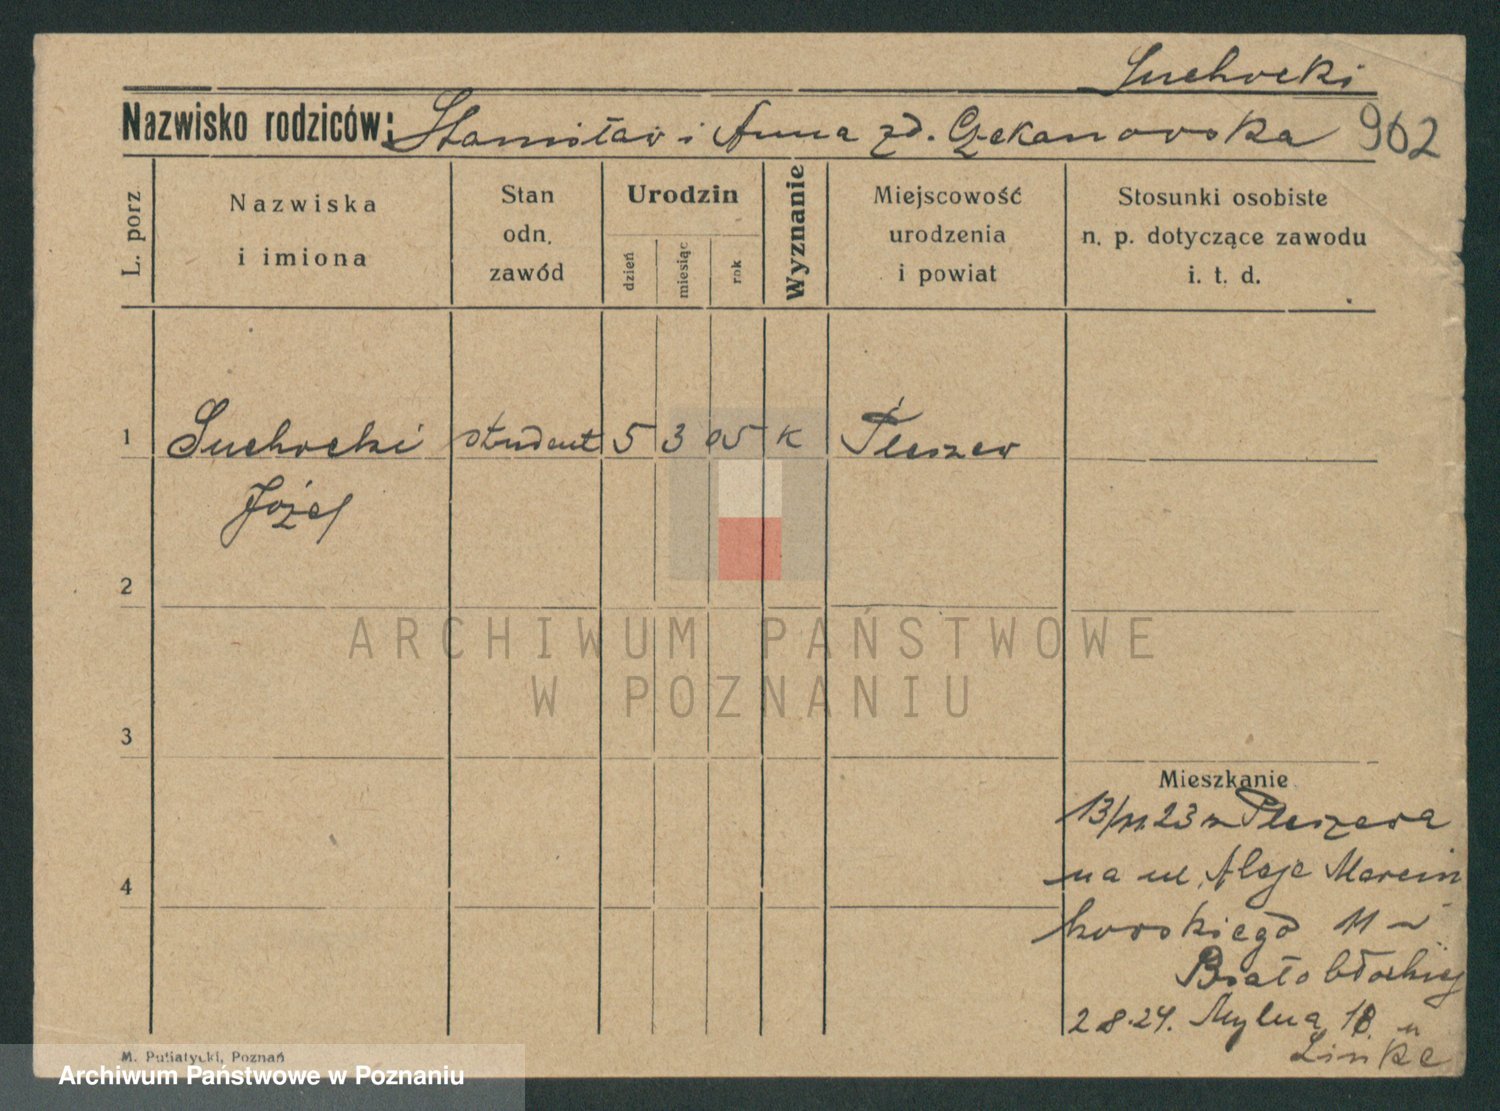 Suchocki
Nazwisko rodziców: Stanisław i Anna zd. Czekanowska 962
L. porz
Nazwiska
i imiona
Stan
odn.
zawód
Urodzin
dzień
miesiąc
rok
Wyznanie
Miejscowość
urodzenia
i powiat
Stosunki osobiste
n. p. dotyczące zawodu
i. t. d.
1 Suchocki student 5 3 05 K Pleszew
Józef
2
ARCHIWUM PAŃSTWOWE
W POZNANIU
3
Mieszkanie
13/11.23 z Pleszewa
4
na ul. Aleje Marcin
kowskiego 11
2.8.24. Mylna 18 u
Linke
M. Putiatycki, Poznań
Archiwum Państwowe w Poznaniu